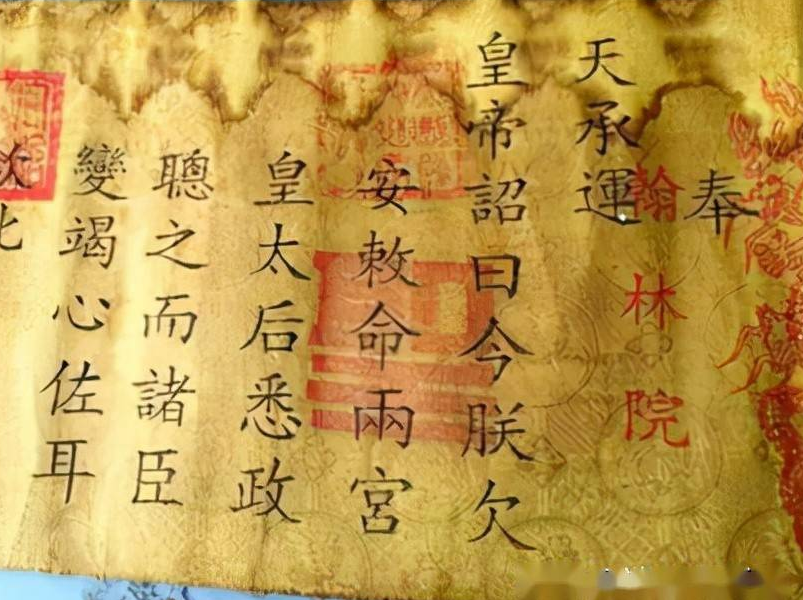 奉
翰林院
天承運
皇帝詔曰今朕欠
安敕命兩宮
皇太后悉政
聰之而諸臣
變竭心佐耳